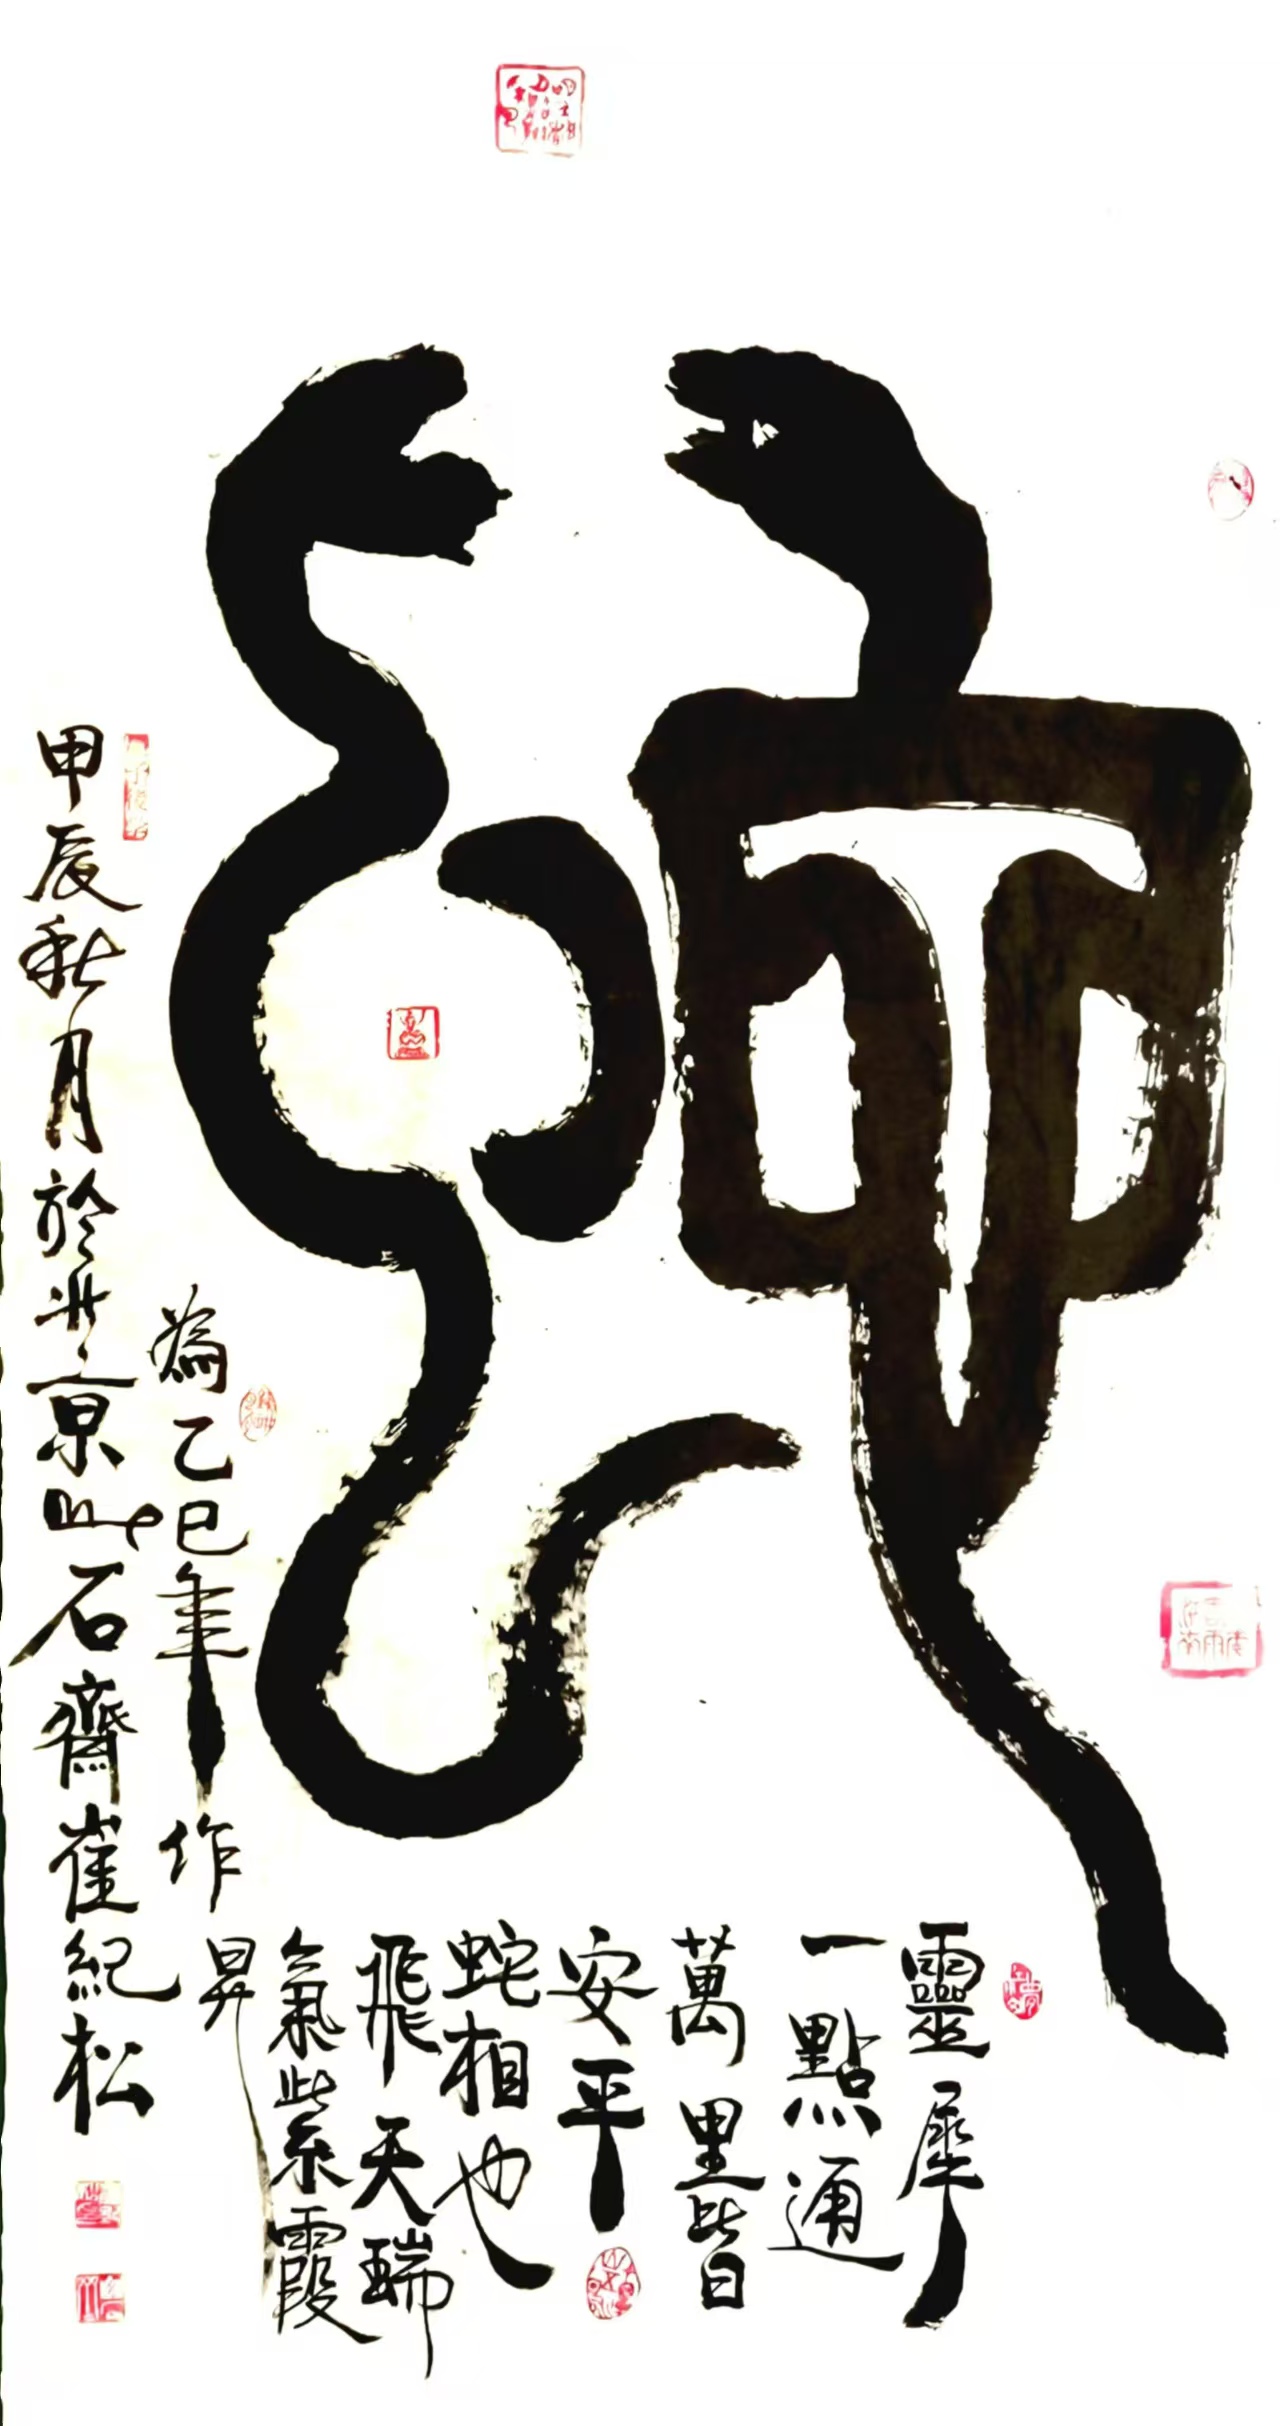 靈犀
一點通
萬里皆
安平
蛇相也
飛天瑞
氣紫霞
昇
為乙巳年作
甲辰秋月於北京
石齋崔紀松